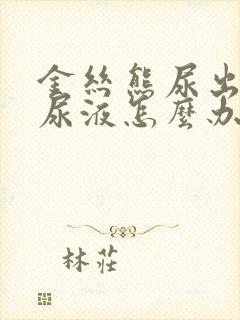 金丝熊尿出
尿液怎麽办
林莊